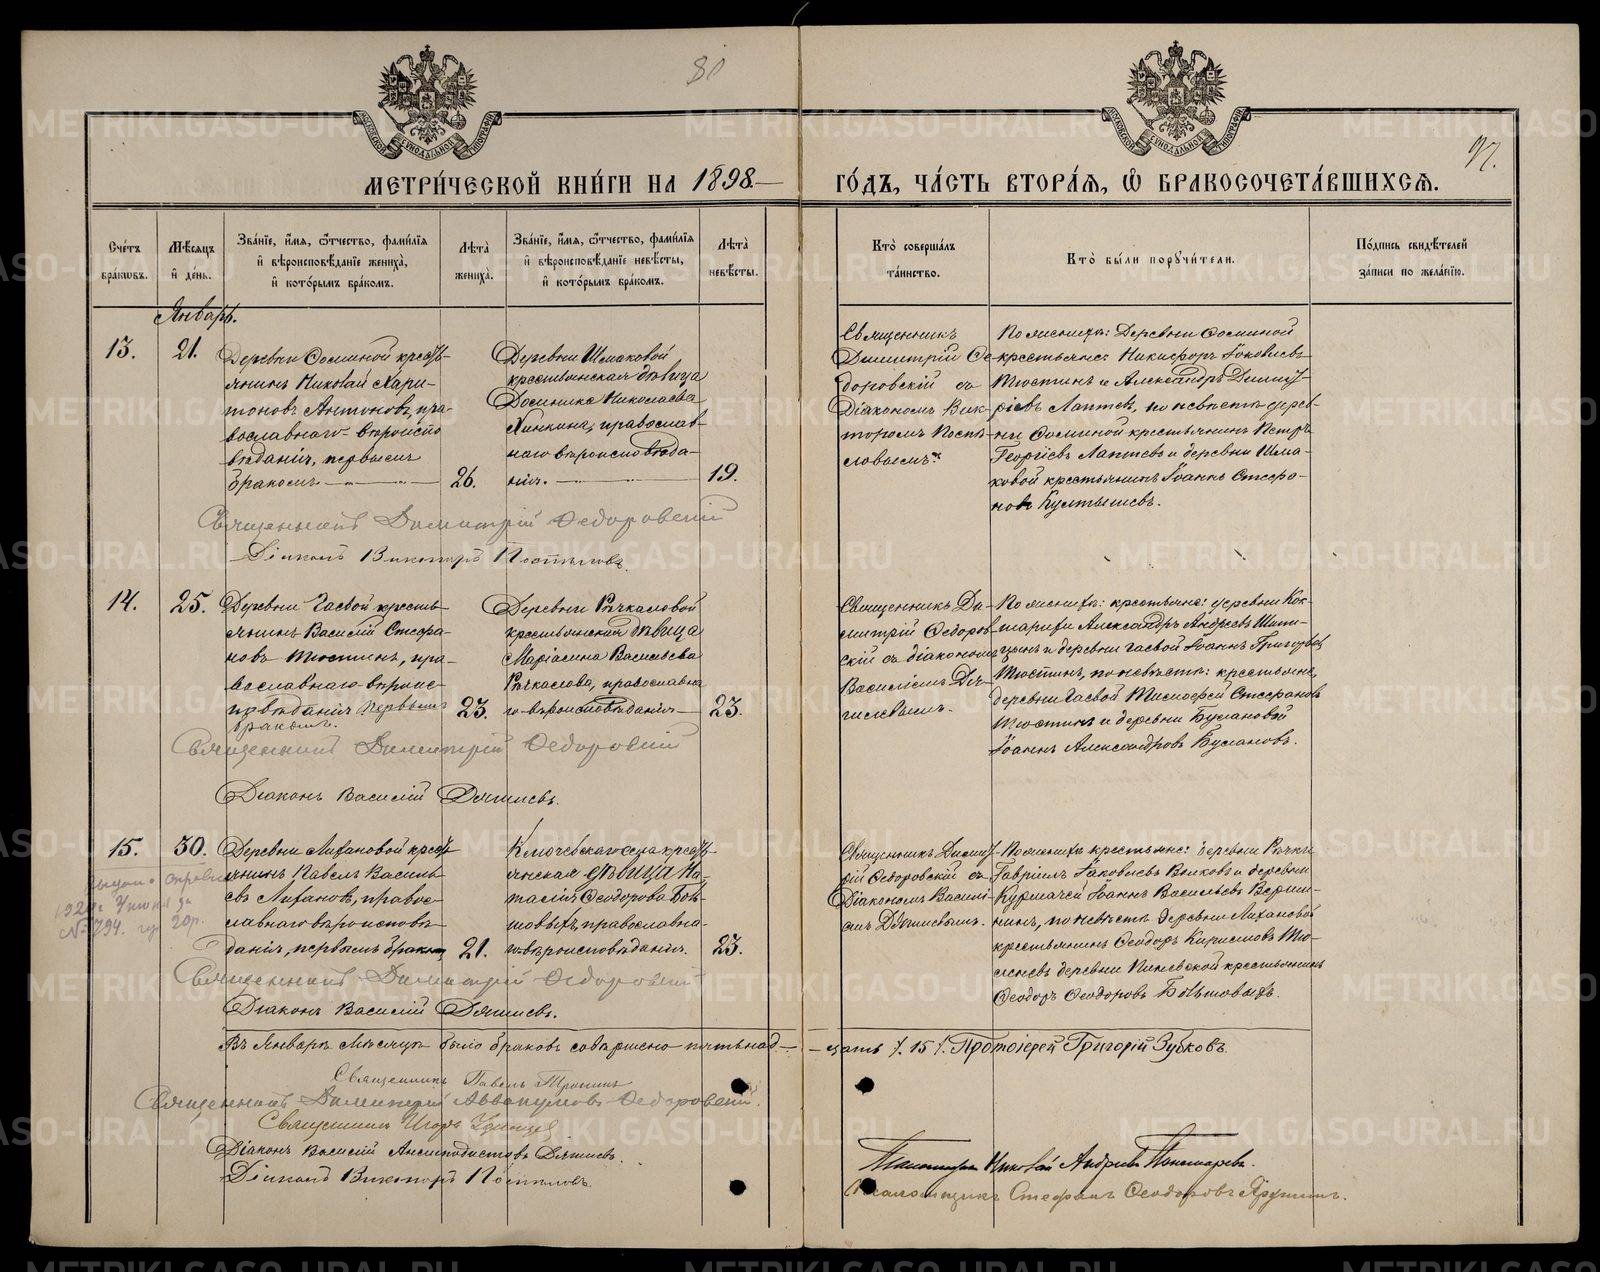 80
97.
МЕТРИ́ЧЕСКОЙ КНИ́ГИ НА 1898.
ГО́ДЪ, ЧА́СТЬ ВТОРА́Я, Ѿ БРАКОСОЧЕТА́ВШИХСЯ.
Сче́тъ бра́кѡвъ.
Мѣ́сяцъ и҆ де́нь.
Зва́нїе, и҆́мя, ѻ҆́тчество, фами́лїя
и҆ вѣроисповѣ́данїе жениха̀,
и҆ кото́рымъ бра́комъ.
Лѣ́та жениха̀.
Зва́нїе, и҆́мя, ѻ҆́тчество, фами́лїя
и҆ вѣроисповѣ́данїе невѣ́сты,
и҆ кото́рымъ бра́комъ.
Лѣ́та невѣ́сты.
Кто̀ соверша́лъ
та́инство.
Кто̀ бы́ли поручи́тели.
По́дпись свидѣ́телей
за́писи по жела́нїю.
Январь.
13.
21.
Деревни Осиновой кресть-
янинъ Николай Хари-
тоновъ Антоновъ, пра-
вославнаго вѣроиспо
вѣданія, первымъ
бракомъ.
26.
Деревни Шмаковой
крестьянская дѣвица
Домника Николаева
православ-
наго вѣроисповѣда-
нія.
19.
Священникъ
Димитрій Ѳе-
доровскій съ
Діакономъ Вик-
торомъ Поспѣ-
ловымъ.
По женихѣ: Деревни Осиновой
крестьяне: Никифоръ Іаковлевъ
Тюстинъ и Александръ Димит-
ріевъ Лаптевъ, по невѣстѣ дерев-
ни Осиновой крестьянинъ Петръ
Георгіевъ Лаптевъ и деревни Шма-
ковой крестьянинъ Іоаннъ Стефа-
новъ Култышевъ.
Священникъ Димитрій Ѳедоровскій
Діаконъ Викторъ Поспѣловъ.
14.
25.
Деревни Гаевой кресть-
янинъ Василій Стефа-
новъ Тюстинъ, пра-
вославнаго вѣроис-
повѣданія первымъ
бракомъ.
23.
Деревни Рычкаловой
крестьянская дѣвица
Маріамна Васильева
Рычкалова, православна
го вѣроисповѣданія
23.
Священникъ Ди-
митрій Ѳедоров
скій съ діакономъ
Василіемъ Дя-
гилевымъ.
По женихѣ: крестьяне: деревни Кок-
шарихи Александръ Андреевъ Шипи-
цынъ и деревни Гаевой Іоаннъ Григорьевъ
Тюстинъ, по невѣстѣ: крестьяне,
деревни Гаевой Тимоѳей Стефановъ
Тюстинъ и деревни Булановой
Іоаннъ Александровъ Булановъ.
Священникъ Димитрій Ѳедоровскій
Діаконъ Василій Дягилевъ.
15.
30.
Деревни Лихановой кресть
янинъ Павелъ Василь-
евъ Лихановъ, правос-
лавнаго вѣроисповѣ-
данія, первымъ бракомъ
21.
Ключевскаго села кресть-
янская дѣвица На-
талія Ѳеодорова Бол-
товыхъ, православна-
го вѣроисповѣданія.
23.
Священникъ Димит-
рій Ѳедоровскій съ
Діакономъ Василі-
емъ Дягилевымъ.
По женихѣ крестьяне: деревни
Гавріилъ Іаковлевъ Волковъ и деревни
Іоаннъ Васильевъ Верши-
нинъ, по невѣстѣ деревни Лихановой
крестьянинъ Ѳеодоръ
деревни крестьянинъ
Ѳеодоръ Ѳеодоровъ Болтовыхъ.
1924
№ 794.
Священникъ Димитрій Ѳедоровскій
Діаконъ Василій Дягилевъ.
Въ Январѣ мѣсяцѣ было браковъ совершено пятьнад-
цать /. 15 /. Протоіерей Григорій Зубковъ.
Священникъ Павелъ Тронинъ
Священникъ Димитрій Аввакумовъ Ѳедоровскій.
Священникъ Игорь
Діаконъ Василій Антиподистовъ Дягилевъ.
Діаконъ Викторъ Поспѣловъ.
Псаломщикъ Николай Андреевъ Пономаревъ.
Псаломщикъ Стефанъ Ѳеодоровъ Яружинъ.
METRIKI.GASO-URAL.RU